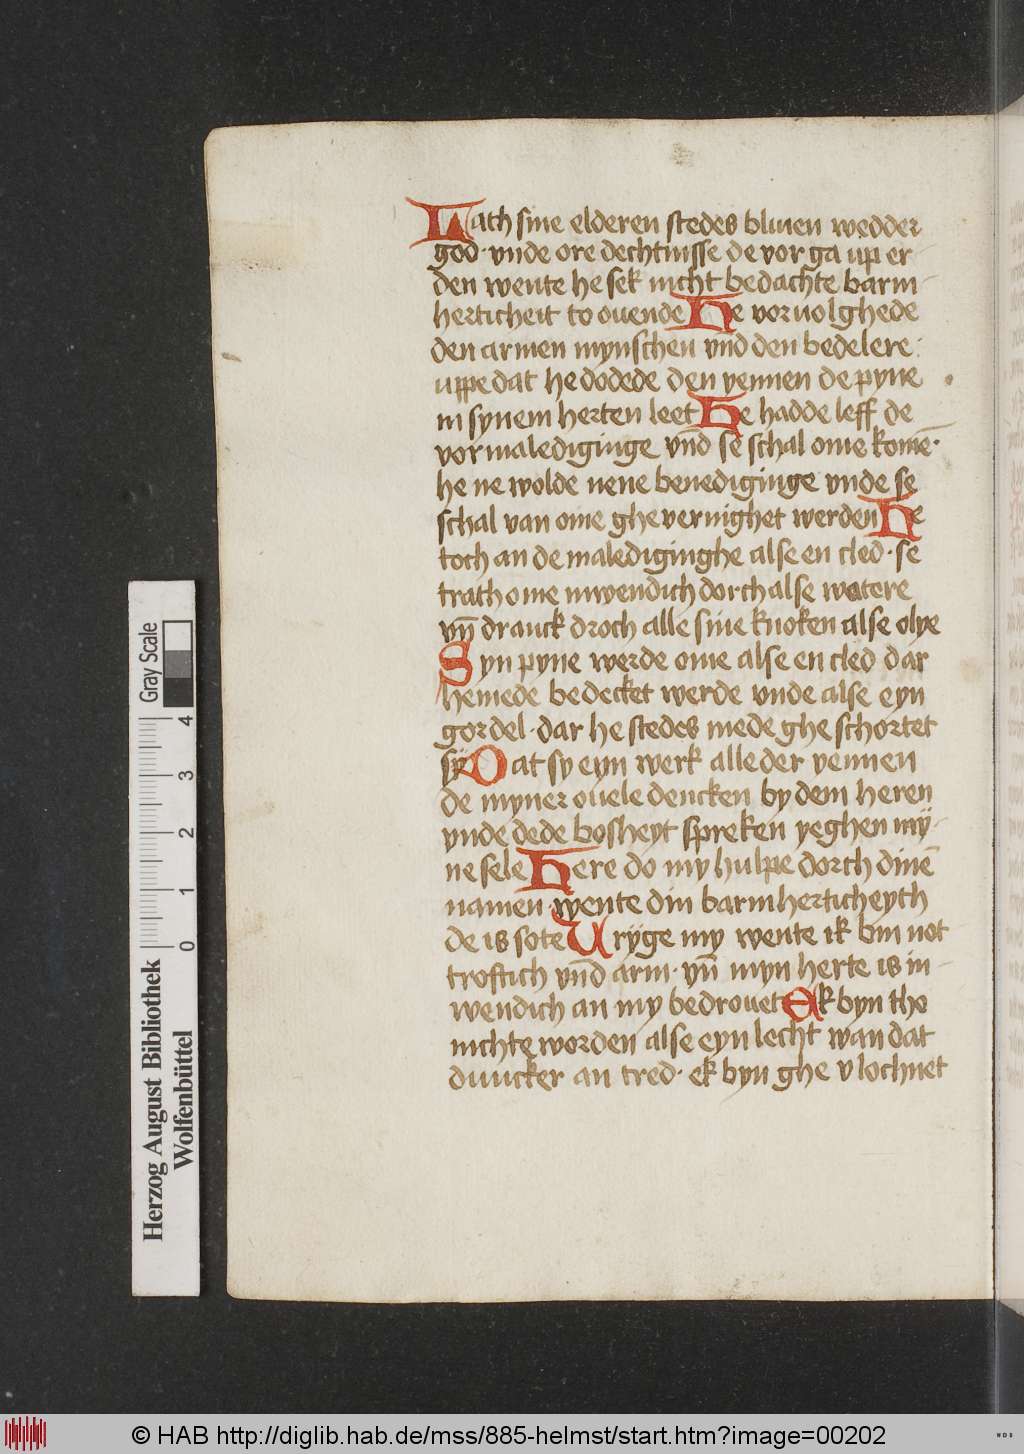 Lath sine elderen stedes bliuen wedder
god · vnde ore dechtnisse de vor ga up er
den wente he sek nicht bedachte barm-
herticheit to ouende He voruolghede
den armen mynschen vn̄d den bedelere ·
uppe dat he dodede den yennen de pyne
in synem herten leet He hadde leff de
vormalediginge vn̄d se schal ome komē ·
he ne wolde nene benediginge vnde se
schal van ome ghevernighet werden He
toch an de maledigínghe alse en cled · se
trath ome inwendich dorch alse watere
vn̄ dranck droch alle sine knoken alse olye
Syn pyne werde ome alse en cled dar
he mede bedecket werde vnde alse eyn
gordel · dar he stedes mede ghe schortet
sy Dat sy eyn werk alle der yennen
de myner ouele dencken by dem heren
vnde dede bosheyt spreken yeghen my-
ne sele Here do my hulpe dorch dinē
namen · wente din barmherticheyth
de is sote Vryge my wente ik bin not
troftich vn̄d arm · vn̄ myn herte is in-
wendich an my bedrouet Ek byn the
nichte worden alse eyn lecht wan dat
duncker an tred · ek byn ghe vlochnet
Herzog August Bibliothek
Wolfenbüttel
0 1 2 3 4
Gray Scale
© HAB http://diglib.hab.de/mss/885-helmst/start.htm?image=00202
WDB